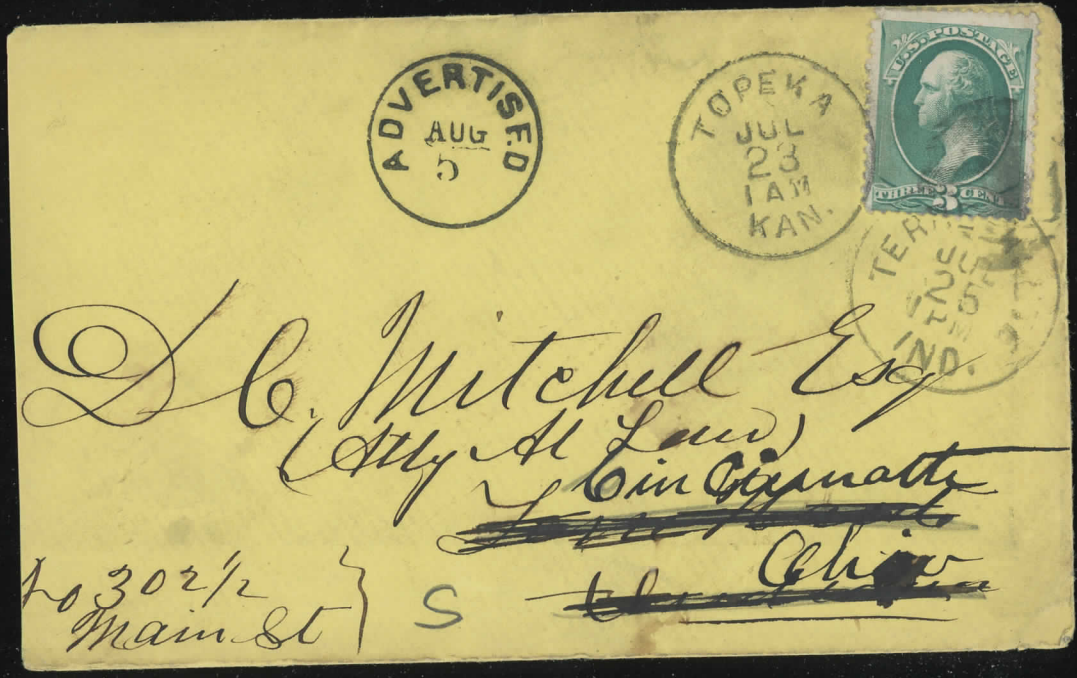 ADVERTISED
AUG
5
TOPEKA
JUL
23
1 AM
KAN.
U.S. POSTAGE
THREE 3 CENTS
TERRE
JUL
25
PM
IND.
D C. Mitchell Esq
(Atty At Law)
Cincinnatti
Ohio
No 302 1/2
Main St
S